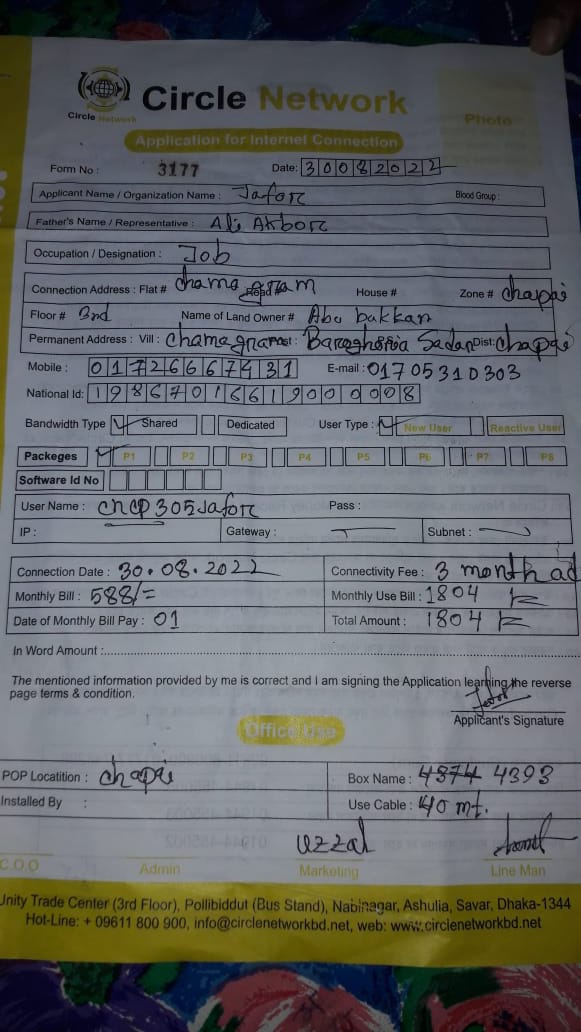 Circle Network
Circle Network
Photo
Application for Internet Connection
Form No : 3177 Date: 30082022
Applicant Name / Organization Name : Jafor Blood Group :
Father's Name / Representative : Ali Akbor
Occupation / Designation : Job
Connection Address : Flat # Chamagram Road # House # Zone # Chapai
Floor # 3nd Name of Land Owner # Abu bakkar
Permanent Address : Vill : Chamagram Post : Baroghoria Sadar Dist: Chapai
Mobile : 01726667431 E-mail : 01705310303
National Id: 19867016619000008
Bandwidth Type Shared Dedicated User Type : New User Reactive User
Packeges P1 P2 P3 P4 P5 P6 P7 P8
Software Id No
User Name : chcp305Jafor Pass :
IP : Gateway : Subnet :
Connection Date : 30.08.2022 Connectivity Fee : 3 month ad
Monthly Bill : 588/= Monthly Use Bill : 1804
Date of Monthly Bill Pay : 01 Total Amount : 1804
In Word Amount :
The mentioned information provided by me is correct and I am signing the Application learning the reverse
page terms & condition.
Applicant's Signature
Office Use
POP Locatition : Chapai Box Name : 4374 4393
Installed By : Use Cable : 40 mt.
Uzzal
C.O.O Admin Marketing Line Man
Unity Trade Center (3rd Floor), Pollibiddut (Bus Stand), Nabinagar, Ashulia, Savar, Dhaka-1344
Hot-Line: + 09611 800 900, info@circlenetworkbd.net, web: www.circlenetworkbd.net